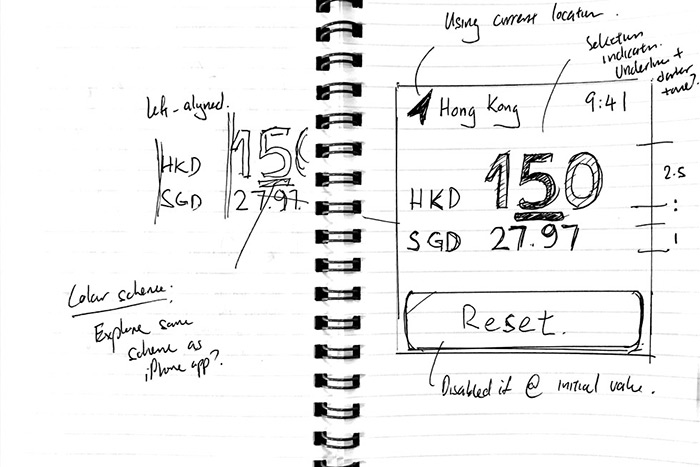 left-aligned.
HKD 150
SGD 27.97
Colour scheme:
Explore same
scheme as
iPhone app?
Using current location.
Selection
indicator.
Underline +
darker
tone?
Hong Kong 9:41
HKD 150
SGD 27.97
2.5
:
1
Reset.
Disabled if @ initial value.